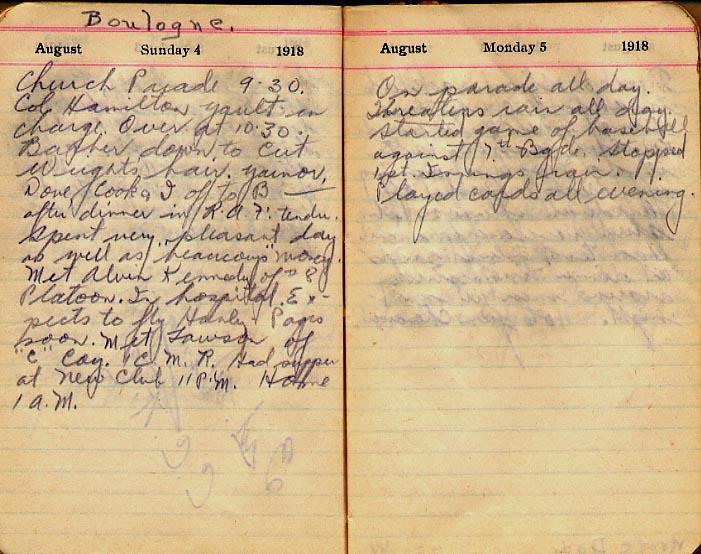 Boulogne.
August Sunday 4 1918
Church Parade 9.30.
Col. Hamilton Gault in
charge. Over at 10:30.
Barber down to cut
Wrights hair. Gaynor,
Dove, Cook & I off to B——
after dinner in R.A.F. tender.
Spent very pleasant day
as well as "beaucoup" money
Met Alvin Kennedy of # 8
Platoon. In hospital. Ex-
pects to fly Hanley-Pages
soon. Met Lawson of
"C" Coy. 1 C.M.R. Had supper
at New Club 11 P.M. Home
1 A.M.
August Monday 5 1918
On parade all day.
Threatens rain all day.
Started game of baseball
against 7th Bgde. Stopped
1st Innings rain.
Played cards all evening.